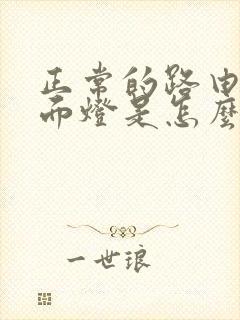 正常的路由
而燈是怎麼
一世琅